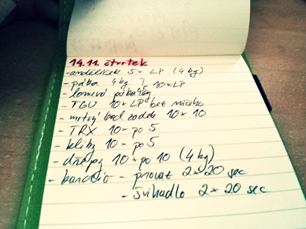 14.11. čtvrtek
- andělíček 5× LP (4 kg)
- páka 4 kg 10× LP
- lomivá
- TGU 10× LP bez
- mrtvý bod zadek 10×10
- TRX 10- po 5
- kliky 10- po 5
- dřepy 10× po 10 (4 kg)
- - provaz 2×20 sec
- švihadlo 2×20 sec